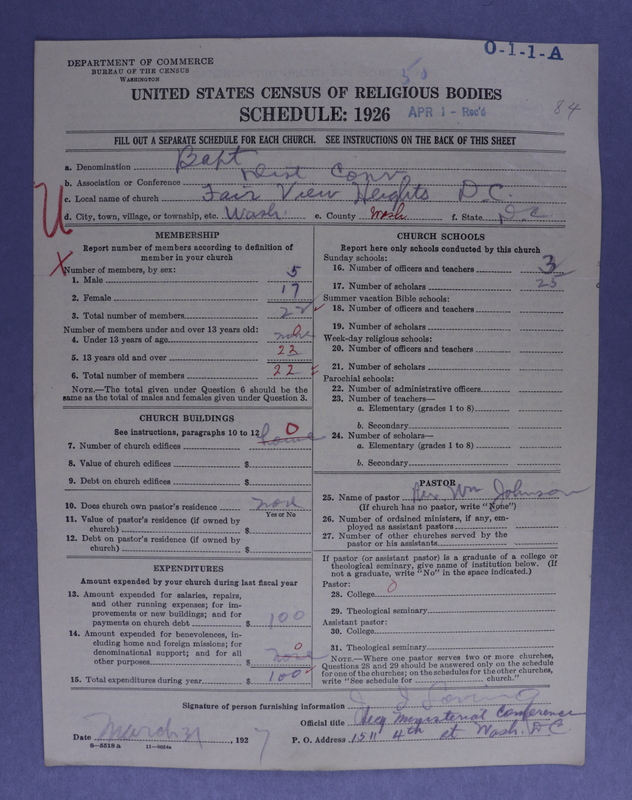 O-1-1-A
DEPARTMENT OF COMMERCE
BUREAU OF THE CENSUS
WASHINGTON
50
UNITED STATES CENSUS OF RELIGIOUS BODIES
SCHEDULE: 1926 APR 1 - Rec'd 84
FILL OUT A SEPARATE SCHEDULE FOR EACH CHURCH. SEE INSTRUCTIONS ON THE BACK OF THIS SHEET
a. Denomination Bapt
b. Association or Conference Dist Conv
c. Local name of church Fair View Heights D.C.
d. City, town, village, or township, etc. Wash. e. County Wash f. State D.C
MEMBERSHIP
Report number of members according to definition of
member in your church
X
Number of members, by sex:
1. Male 5
2. Female 17
3. Total number of members 22
Number of members under and over 13 years old:
4. Under 13 years of age none 0
5. 13 years old and over 23
6. Total number of members 22
NOTE.—The total given under Question 6 should be the
same as the total of males and females given under Question 3.
CHURCH BUILDINGS
See instructions, paragraphs 10 to 12
7. Number of church edifices 0
8. Value of church edifices $
9. Debt on church edifices $
10. Does church own pastor's residence none
Yes or No
11. Value of pastor's residence (if owned by
church) $
12. Debt on pastor's residence (if owned by
church) $
EXPENDITURES
Amount expended by your church during last fiscal year
13. Amount expended for salaries, repairs,
and other running expenses; for im-
provements or new buildings; and for
payments on church debt $ 100
14. Amount expended for benevolences, in-
cluding home and foreign missions; for
denominational support; and for all
other purposes $ none 0
15. Total expenditures during year $ 100
CHURCH SCHOOLS
Report here only schools conducted by this church
Sunday schools:
16. Number of officers and teachers 3
17. Number of scholars 25
Summer vacation Bible schools:
18. Number of officers and teachers
19. Number of scholars
Week-day religious schools:
20. Number of officers and teachers
21. Number of scholars
Parochial schools:
22. Number of administrative officers
23. Number of teachers—
a. Elementary (grades 1 to 8)
b. Secondary
24. Number of scholars—
a. Elementary (grades 1 to 8)
b. Secondary
PASTOR
25. Name of pastor Rev. Wm Johnson
(If church has no pastor, write "None")
26. Number of ordained ministers, if any, em-
ployed as assistant pastors
27. Number of other churches served by the
pastor or his assistants
If pastor (or assistant pastor) is a graduate of a college or
theological seminary, give name of institution below. (If
not a graduate, write "No" in the space indicated.)
Pastor:
28. College 0
29. Theological seminary
Assistant pastor:
30. College
31. Theological seminary
NOTE.—Where one pastor serves two or more churches,
Questions 28 and 29 should be answered only on the schedule
for one of the churches; on the schedules for the other churches,
write "See schedule for church."
Signature of person furnishing information
Official title Ministerial Conference
Date March 31, 1927 P. O. Address 1511 4th st Wash. D.C.
8—5518a 11—9664a